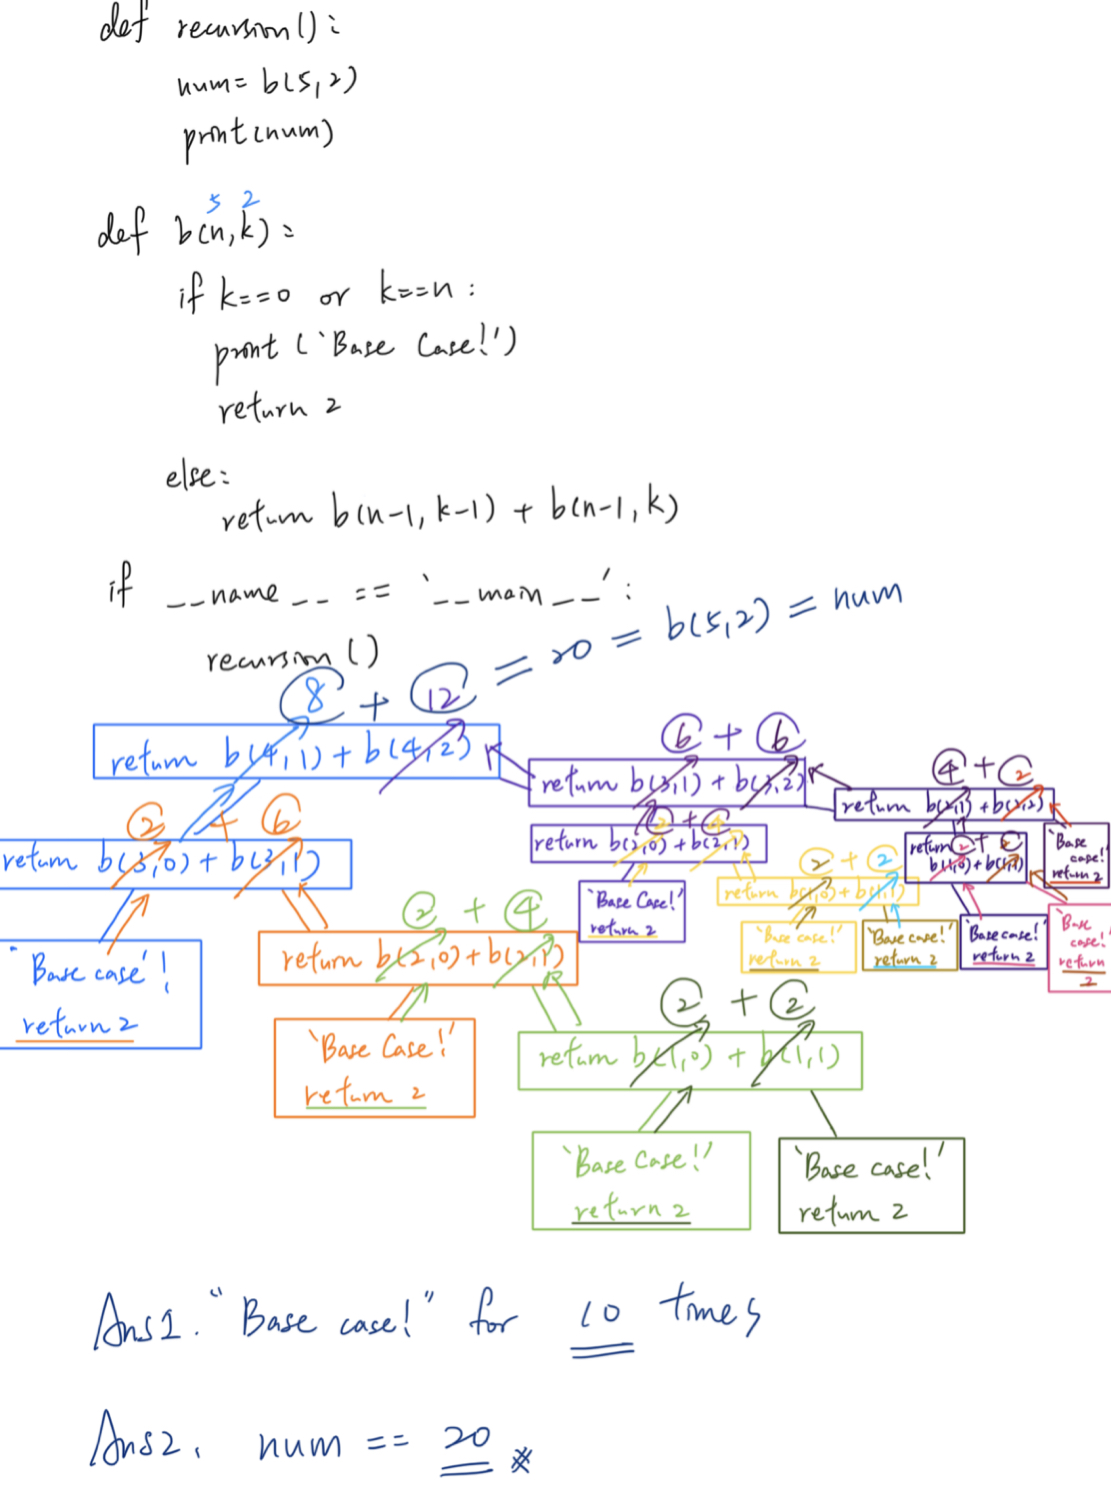 def recursion():
num= b(5,2)
print(num)
5 2
def b(n,k):
if k==0 or k==n:
print ('Base Case!')
return 2
else:
return b(n-1, k-1) + b(n-1, k)
if __name__ == '__main__':
recursion ()
8 + 12 = 20 = b(5,2) = num
return b(4,1) + b(4,2)
6 + 6
return b(3,1) + b(3,2)
4 + 2
return b(2,1) + b(2,2)
2 + 6
return b(3,0) + b(3,1)
2 + 4
return b(2,0) + b(2,1)
return 2 + 2
b(1,0) + b(1,1)
'Base case!'
return 2
2 + 2
return b(1,0) + b(1,1)
'Base case'!
return 2
2 + 4
return b(2,0) + b(2,1)
'Base Case!'
return 2
'Base case!'
return 2
'Base case!'
return 2
'Base case!'
return 2
'Base case!'
return 2
'Base Case!'
return 2
2 + 2
return b(1,0) + b(1,1)
'Base Case!'
return 2
'Base case!'
return 2
Ans1. "Base case!" for 10 times
Ans2. num == 20 ※